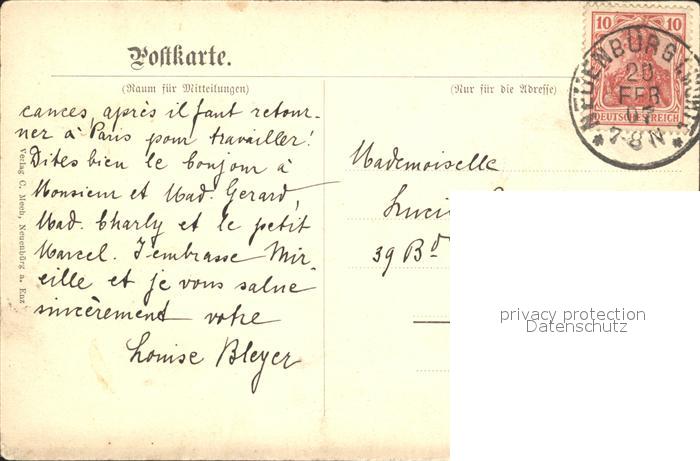 Postkarte.
(Raum für Mitteilungen)
(Nur für die Adresse)
cances, après il faut retour-
ner à Paris pour travailler!
Dites bien le bonjour à
Monsieur et Mad. Gerard,
Mad. Charly et le petit
Marcel. J'embrasse Mir
eille et je vous salue
sincèrement votre
Louise Bleyer
Verlag C. Meeh, Neuenbürg a. Enz
Mademoiselle
39 Bd
10 10
DEUTSCHES REICH
NEUENBÜRG
20
FEB
07
7-8 N
privacy protection
Datenschutz